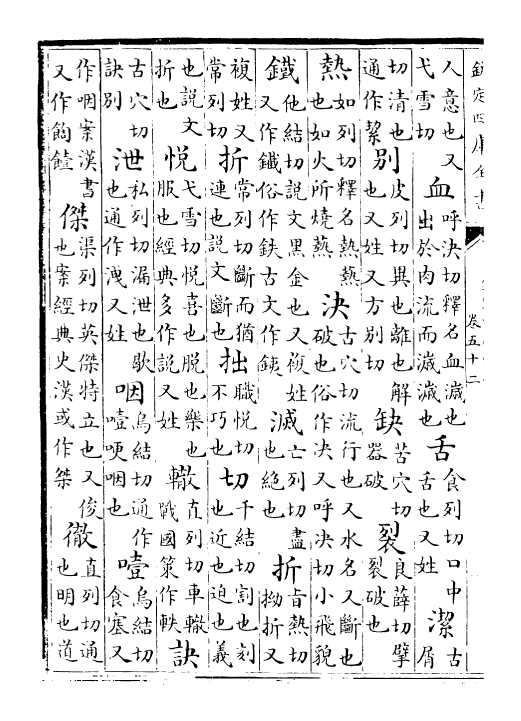 欽定四庫全書
卷五十二
人意也又弋雪切血呼決切釋名血濊也出於肉流而濊濊也舌食列切口中舌也又姓潔古屑
切清也通作絜別皮列切異也離也解也又姓又方別切缺苦穴切器破裂良薛切擘裂破也
熱如列切釋名熱爇也如火所燒爇決古穴切流行也又水名又斷也破也俗作决又呼決切小飛貌
鐵他結切說文黑金也又複姓又作鐡俗作鉄古文作銕滅亡列切盡也絶也折旨熱切拗折又
複姓又常列切折常列切斷而猶連也說文斷也拙職悅切不巧也切千結切割也刻也近也迫也義
也說文折也悅弋雪切悅喜也脫也樂也服也經典多作說又姓轍直列切車轍戰國策作軼訣
古穴切訣別泄私列切漏泄也歇也通作洩又姓咽烏結切通作噎哽咽也噎烏結切食塞又
作咽案漢書又作饐傑渠列切英傑特立也又俊也案經典史漢或作桀徹直列切通也明也道